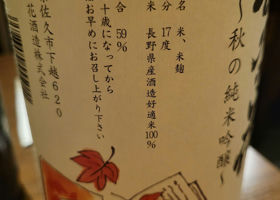 〜秋の純米吟醸〜
名 米、米麹
分 17度
米 長野県産酒造好適米100%
合 59%
十歳になってから
お早めにお召し上がり下さい
佐久市下越620
花酒造株式会社